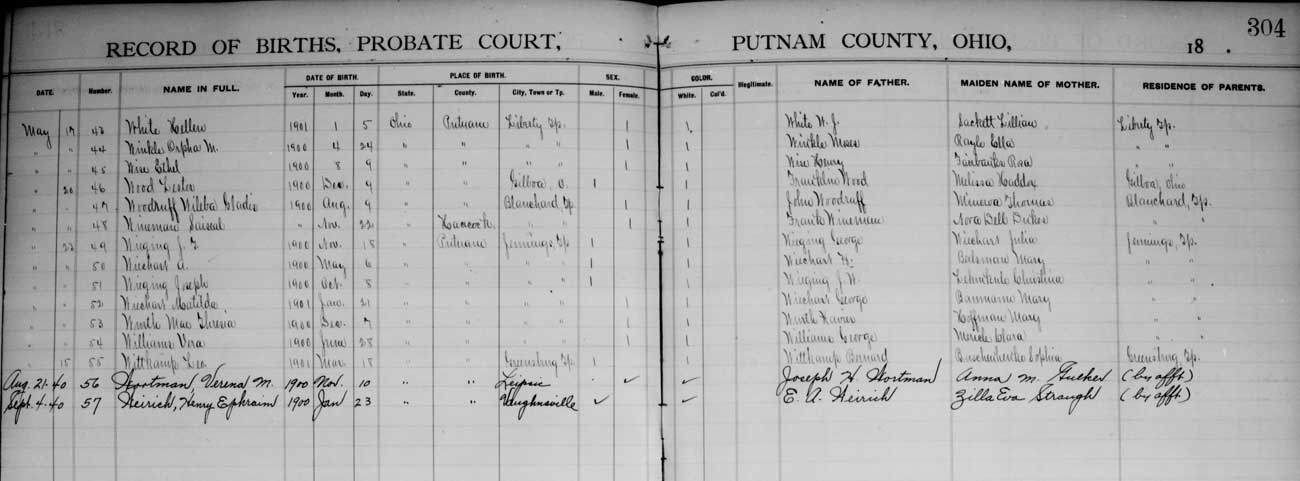 304
RECORD OF BIRTHS, PROBATE COURT, PUTNAM COUNTY, OHIO, 18 .
DATE. Number. NAME IN FULL. DATE OF BIRTH. Year. Month. Day. PLACE OF BIRTH. State. County. City, Town or Tp. SEX. Male. Female. COLOR. White. Col'd. Illegitimate. NAME OF FATHER. MAIDEN NAME OF MOTHER. RESIDENCE OF PARENTS.
May 17 43 White Hellen 1901 1 5 Ohio Putnam Liberty Tp. 1 1 White W. J. Sackett Lillian Liberty Tp.
" " 44 Winkle Orpha M. 1900 4 24 " " " " 1 1 Winkle Moses Rayle Ella " "
" " 45 Wise Ethel 1900 8 9 " " " " 1 1 Wise Henry Fairbanks Rosa " "
" 20 46 Wood Lester 1900 Dec. 9 " " Gilboa, O. 1 1 Franklin Wood Melissa Haddox Gilboa, Ohio
" " 47 Woodruff Gladis 1900 Aug. 9 " " Blanchard, Tp. 1 1 John Woodruff Minerva Thomas Blanchard, Tp.
" " 48 Wineman " Nov. 22 " Hancock " " 1 1 Frank Wineman Nora Bell " "
" 22 49 Wieging J. 1900 Nov. 18 " Putnam Jennings, Tp. 1 1 Wieging George Wiechart Julia Jennings, Tp.
" " 50 Wiechart A. 1900 May 6 " " " " 1 1 Wiechart Mary " "
" " 51 Wieging Joseph 1900 Oct. 8 " " " " 1 1 Wieging J. W. Christina " "
" " 52 Wiechart Matilda 1901 Jan. 21 " " " " 1 1 Wiechart George Mary " "
" " 53 Wurth Mae 1900 Dec. 7 " " " " 1 1 Wurth Xavier Hoffman Mary " "
" " 54 Williams Vera 1900 June 28 " " " " 1 1 Williams George Clara " "
" 15 55 Wittkamp Leo 1901 Mar. 18 " " Greensburg Tp. 1 1 Wittkamp Barnard Sophia Greensburg, Tp.
Aug. 21-40 56 Hortman, Verena M. 1900 Nov. 10 " " Leipsic ✓ ✓ Joseph H. Hortman Anna M. (by afft)
Sept. 4-40 57 Heirich, Henry Ephraim 1900 Jan 23 " " Vaughnsville ✓ ✓ E. A. Heirich Zilla Eva Straugh (by afft)